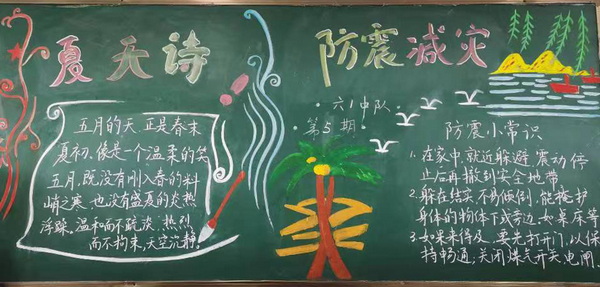 夏天诗
五月的天，正是春末
夏初，像是一个温柔的笑
五月，既没有刚入春的料
峭之寒，也没有盛夏的炎热
浮躁。温和而不疏淡，热烈
而不拘束，天空沉静。
防震减灾
六1中队
第5期
防震小常识
1. 在家中，就近躲避，震动停
止后再撤到安全地带
2. 躲在结实、不易倾倒、能掩护
身体的物体下或旁边，如桌、床等
3. 如果来得及，要先打开门，以保
持畅通，关闭煤气开关、电闸、